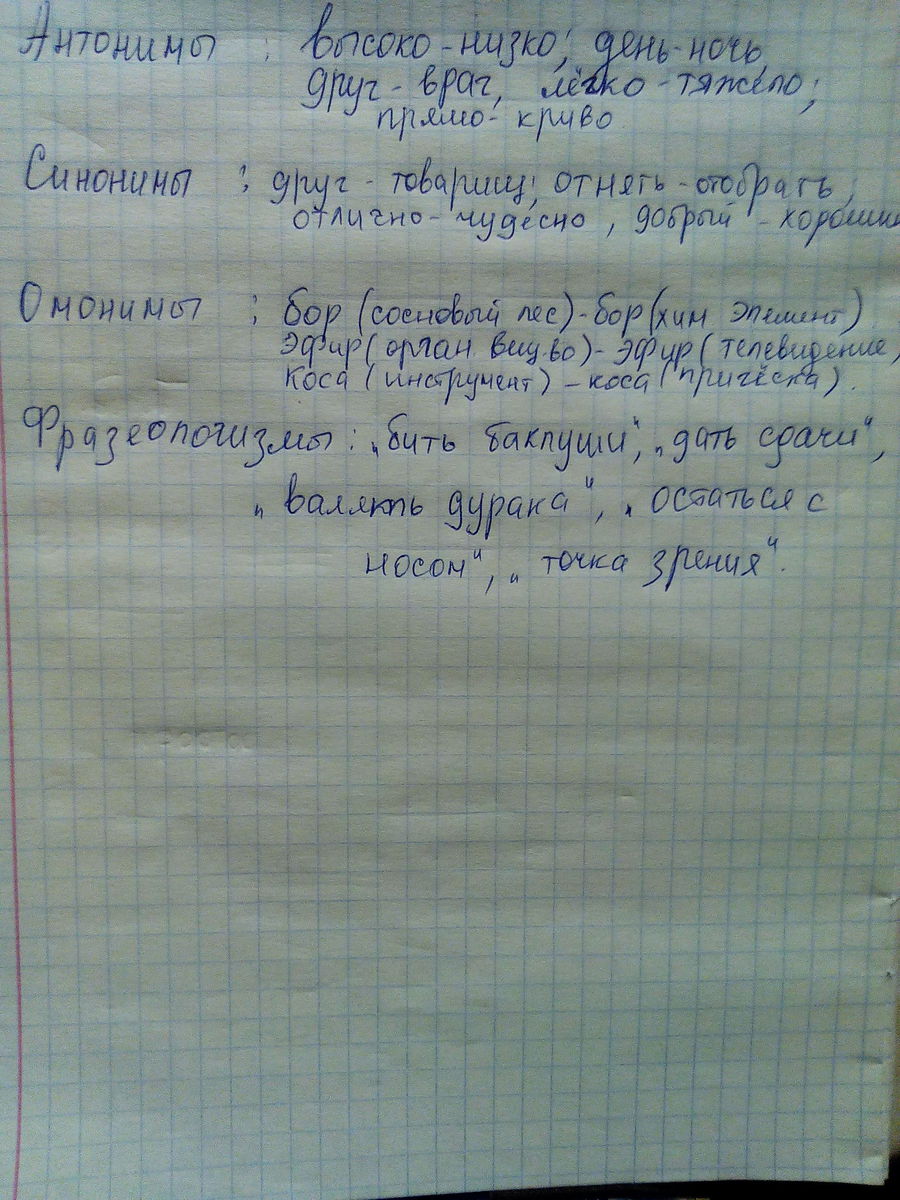 Антонимы : высоко-низко; день-ночь,
друг - враг, лёгко - тяжело;
прямо- криво
Синонимы : друг - товарищ; отнять-отобрать,
отлично-чудесно, добрый - хороший
Омонимы : бор (сосновый лес)-бор(хим элемент)
эфир(орган вещ-во)- эфир (телевидение)
коса (инструмент) - коса (причёска).
Фразеологизмы: „бить баклуши", „дать сдачи",
„валять дурака", „остаться с
носом", „точка зрения".